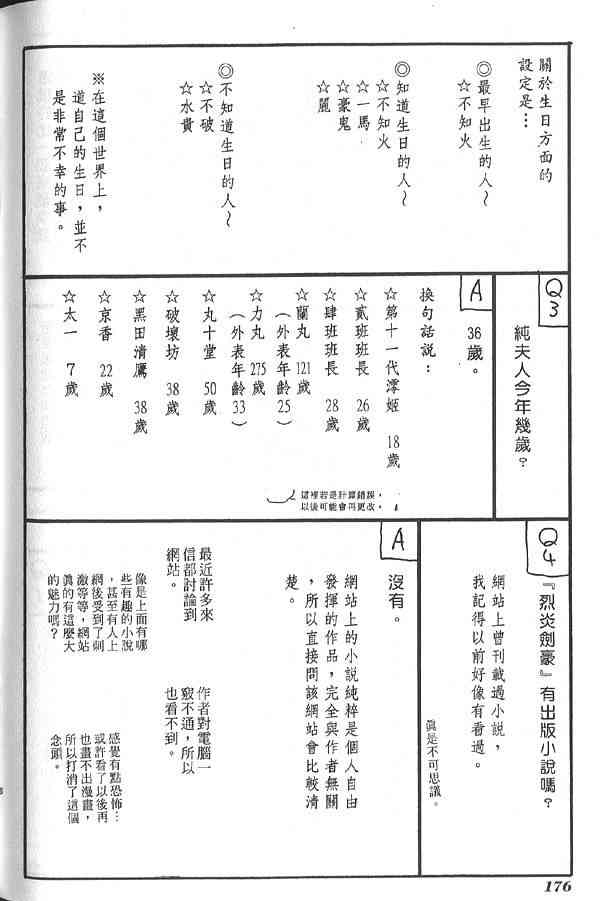 關於生日方面的
設定是…
◎最早出生的人～
☆不知火
◎知道生日的人～
☆不知火
☆一馬
☆豪鬼
☆麗
◎不知道生日的人～
☆不破
☆水貴
※在這個世界上，
道自己的生日，並不
是非常不幸的事。
Q3
純夫人今年幾歲？
A
36歲。
換句話說：
☆第十一代澪姬 18歲
☆貳班班長 26歲
☆肆班班長 28歲
☆蘭丸 121歲
（外表年齡25）
☆力丸 275歲
（外表年齡33）
☆丸十堂 50歲
☆破壞坊 38歲
☆黑田清鷹 38歲
☆京香 22歲
☆太一 7歲
這裡若是計算錯誤，
以後可能會再更改。
Q4
『烈炎劍豪』有出版小說嗎？
網站上曾刊載過小說，
我記得以前好像有看過。
真是不可思議。
A
沒有。
網站上的小說純粹是個人自由
發揮的作品，完全與作者無關
，所以直接問該網站會比較清
楚。
最近許多來
信都討論到
網站。
作者對電腦一
竅不通，所以
也看不到。
像是上面有哪
些有趣的小說
，甚至有人上
網後受到了刺
激等等，網站
真的有這麼大
的魅力嗎？
感覺有點恐怖…
或許看了以後再
也畫不出漫畫，
所以打消了這個
念頭。
176